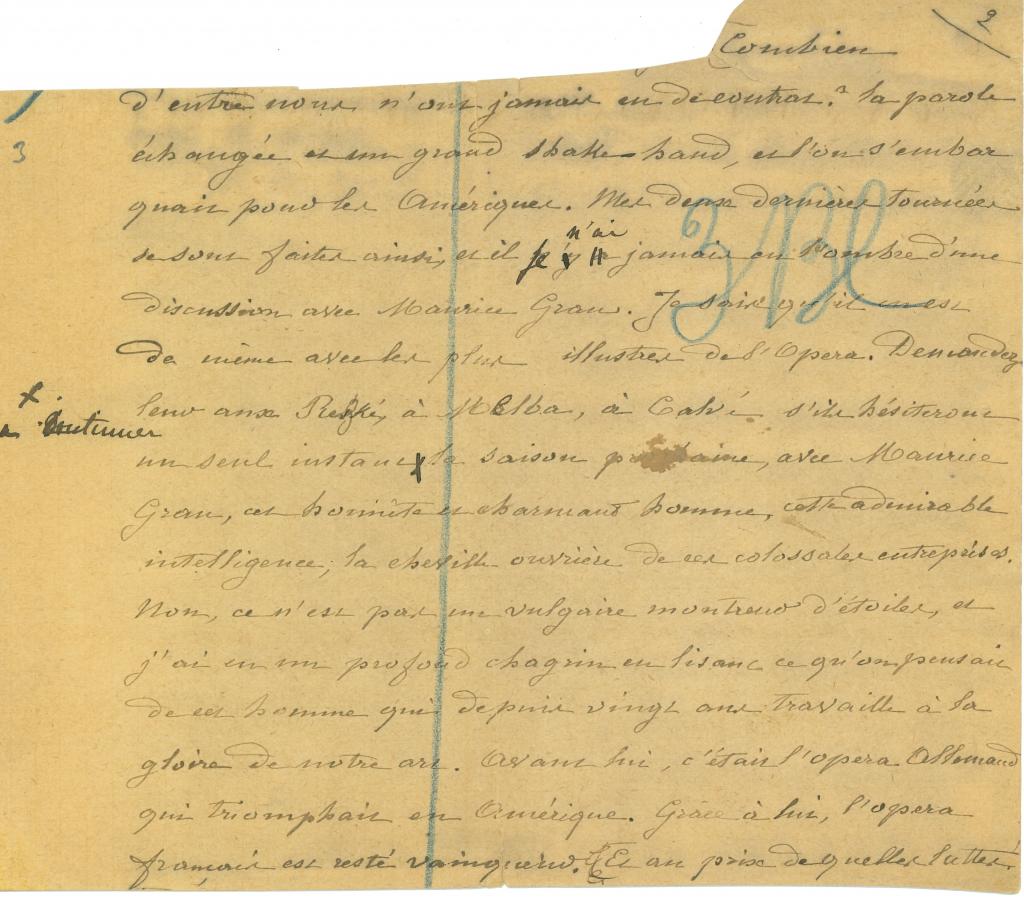 2
Combien
d'entre nous n'ont jamais eu de contrat ? la parole
3
échangée et un grand shake-hand, et l'on s'embar
quait pour les Amériques. Mes deux dernières tournées
n'ai
se sont faites ainsi, et je jamais eu l'ombre d'une
discussion avec Maurice Grau. Je sais qu'il en est
de même avec les plus illustres de l'Opera. Demandez
leur aux Reské, à Melba, à Calvé s'ils hésiteront
x
à continuer
un seul instant x la saison prochaine, avec Maurice
Grau, cet honnête et charmant homme, cette admirable
intelligence, la cheville ouvrière de ces colossales entreprises.
Non, ce n'est pas un vulgaire montreur d'étoiles, et
j'ai eu un profond chagrin en lisant ce qu'on pensait
de cet homme qui depuis vingt ans travaille à la
gloire de notre art. Avant lui, c'était l'opera Allemand
qui triomphait en Amérique. Grâce à lui, l'opera
français est resté vainqueur. Et au prix de quelles luttes